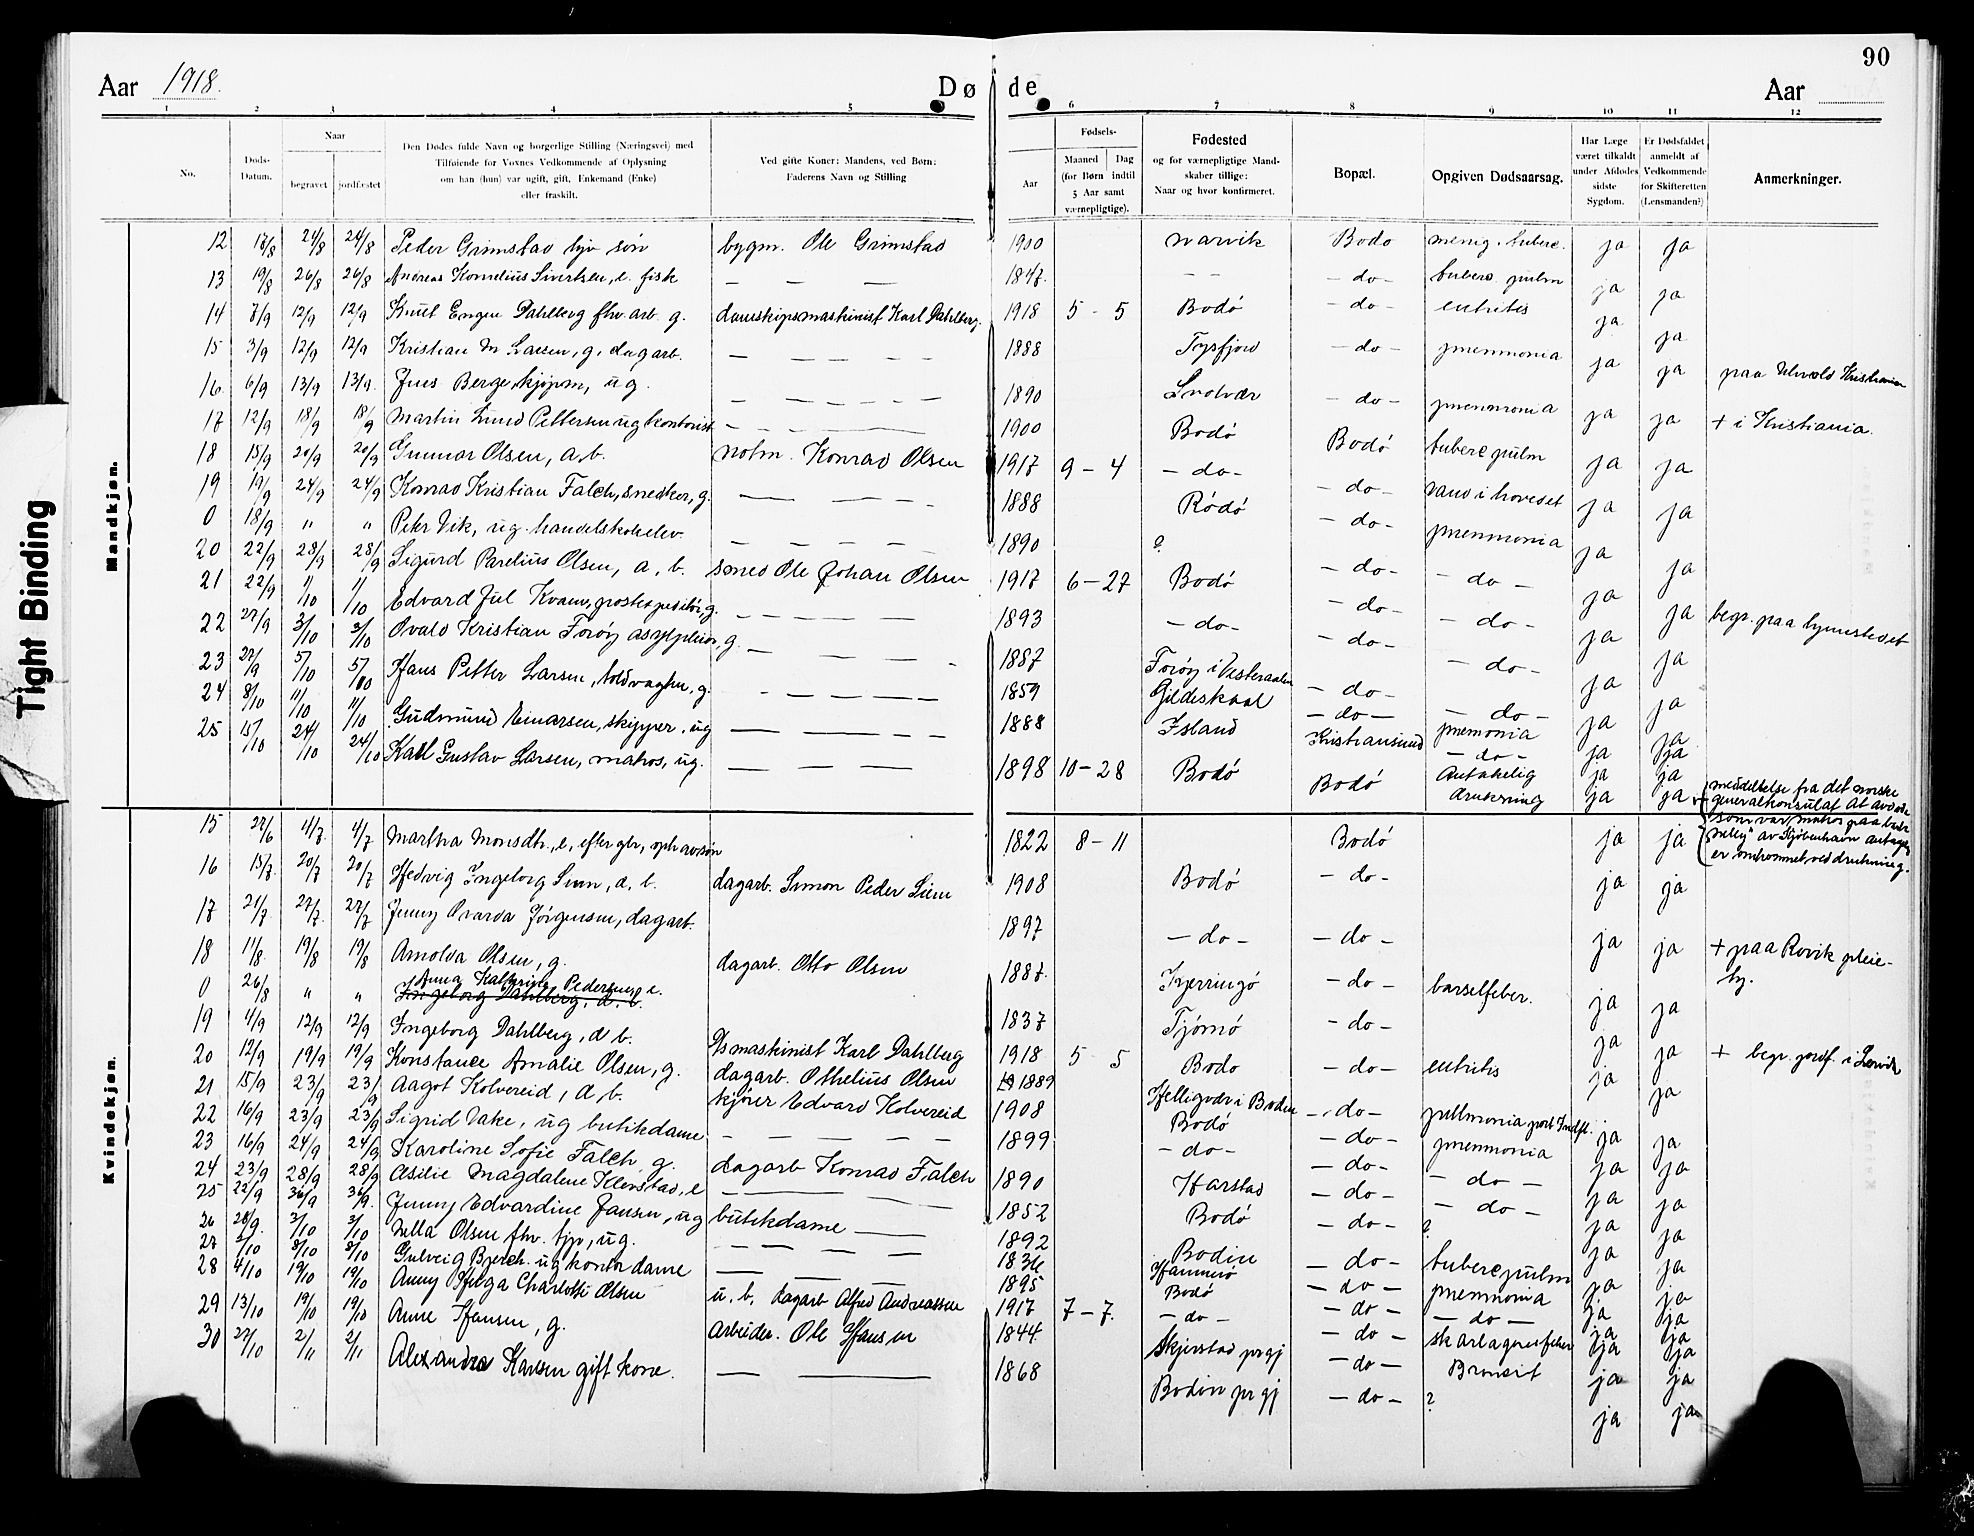 90
Aar 1918. Døde Aar
1 2 3 4 5 6 7 8 9 10 11 12
No. Døds-Datum. Naar begravet jordfæstet Den Dødes fulde Navn og borgerlige Stilling (Næringsvei) med Tilføiende for Voxnes Vedkommende af Oplysning om han (hun) var ugift, gift, Enkemand (Enke) eller fraskilt. Ved gifte Koner: Mandens, ved Børn: Faderens Navn og Stilling Aar Fødsels- Maaned Dag (for Børn indtil 5 Aar samt værnepligtige). Fødested og for værnepligtige Mandskaber tillige: Naar og hvor konfirmeret. Bopæl. Opgiven Dødsaarsag. Har Læge været tilkaldt under Afdødes sidste Sygdom. Er Dødsfaldet anmeldt af Vedkommende for Skifteretten (Lensmanden?) Anmerkninger.
Tight Binding
Mandkjøn.
12 18/8 24/8 24/8 Peder Grimstad hjv søn bygm. Ole Grimstad 1900 Narvik Bodø menig. tuberc. ja ja
13 19/8 26/8 26/8 Andreas Kornelius Sivertsen, e. fisk — — — 1847. - - - do - tuberc. pulm ja ja
14 7/9 12/9 12/9 Knut Engen Dahlberg fhv. arb. g. dampskipsmaskinist Karl Dahlberg. 1918 5 - 5 Bodø - do - entritis ja ja
15 3/9 12/9 12/9 Kristian M Larsen, g. dagarb. — — — 1888 Tysfjord - do - pnenmonia ja ja
16 6/9 13/9 13/9. Jens Berge, kjøpm, ug. — — — 1890 Svolvær - do - pnenmonia ja ja paa Ulvold Kristiania
17 12/9 18/9 18/9 Martin Lund Pettersen ug kontorist — — — 1900 Bodø Bodø tuberc pulm ja ja + i Kristiania.
18 15/9 20/9 20/9 Gunnar Olsen, a. b. notm. Konrad Olsen 1917 9 - 4 - do - - do - vand i hovedet ja ja
19 19/9 24/9 24/9 Konrad Kristian Falch, snedker, g. — — — 1888 Rødø - do - pnenmonia ja ja
0 18/9 " " Peter Vik, ug. handelskoleelev. — — — 1890 ? - do - - do - ja ja
20 22/9 28/9 28/9 Sigurd Parelius Olsen, a. b. smed Ole Johan Olsen 1917 6 - 27 Bodø - do - - do - ja ja
21 22/9 1/10 1/10 Edvard Jul Kvam, postexpeditør, g. — — — 1893 - do - - do - - do - ja ja begr. paa hjemstedet
22 27/9 3/10 3/10 Ovald Kristian Forøy asylpleier, g. — — — 1887 Forøy i Vesteraalen - do - - do - ja ja
23 27/9 5/10 5/10 Hans Petter Larsen, toldvagtm, g. — — — 1859 Gildeskaal - do - pnemonia ja ja
24 8/10 11/10 11/10 Gudmund Einarsen, skipper, ug — — — 1888 Island Kristiansund - do - ja ja
25 15/10 24/10 24/10 Karl Gustav Larsen, matros, ug. — — — 1898 10 - 28 Bodø Bodø Antakelig drukning ja ja
meddelelse fra det norske generalkonsulat at avdøde som var matros paa av Kjøbenhavn antages er omkommet ved drukning.
Kvindekjøn.
15 27/6 4/7 4/7 Martha Monsdtr., e, efter gbr, oph av søn 1822 8 - 11 Bodø ja ja
16 15/7. 20/7 20/7 Hedvig Ingeborg Siem, a. b. dagarb. Simon Peder Siem 1908 Bodø - do - ja ja
17 21/7 27/7. 27/7 Jenny Ovarda Jørgensen, dagarb. 1897 - do - - do - ja ja + paa Rovik pleie-hj.
18 11/8. 19/8 19/8 Arnolda Olsen, g. dagarb. Otto Olsen 1887. Kjerringø - do - barselfeber. ja ja
0 26/8 " " Anna Kathrine Pedersen, e. 1837 Tjømø - do - ja ja
Ingeborg Dahlberg, d. b.
19 4/9 12/9 12/9 Ingeborg Dahlberg, d b. Dsmaskinist Karl Dahlberg 1918 5 - 5 Bodø - do - entritis ja ja + begr. jordf. i
20 12/9 19/9 19/9 Konstance Amalie Olsen, g. dagarb. Othelius Olsen 1889 Helligvær i Bodin - do - pnllmonia post Infl. ja ja
21 15/9 23/9 23/9 Aagot Kolvereid, d, b. kjører Edvard Kolvereid 1908 Bodø - do - pnenmonia ja ja
22 16/9 23/9 23/9 Sigrid Vake, ug butikdame — — — 1899 - do - - do - - do - ja ja
23 16/9 24/9 24/9 Karoline Sofie Falch, g. dagarb Konrad Falch 1890 Harstad - do - - do - ja ja
24 23/9 28/9 28/9 Asilie Magdalene Klevstad, e — — 1852 Bodø - do - ? ja ja
25 22/9 30/9 30/9. Jenny Edvardine Jansen, ug butikdame — 1892 Bodin - do - tuberc pulm ja ja
26 28/9. 3/10 3/10 Nella Olsen fhv. tjp, ug. — — — 1836 Hammerø - do - pnenmonia ja ja
27 2/10 8/10 8/10 Gulveig Bjerch. ug kontordame — — — 1895 Bodø - do - - do - ja ja
28 4/10 19/10 19/10 Anny Helga Charlotte Olsen u. b. dagarb Alfred Andreassen 1917 7 - 7. - do - - do - skarlagensfeber ja ja
29 13/10 19/10 19/10 Anne Hansen, g. Arbeider. Ole Hansen 1844. Skjerstad prgj - do - Bronkit ja ja
30 27/10 2/11 2/11 Alexandra Karsen gift kone. — — 1868 Bodin pr gj - do - ? ja ja